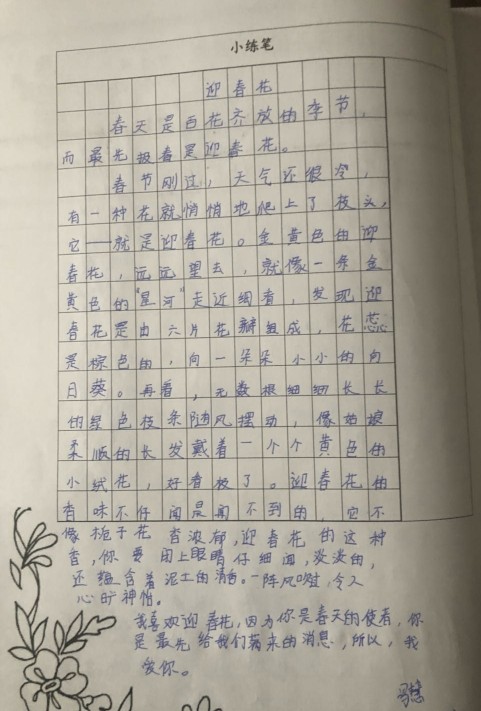 小练笔
迎春花
春天是百花齐放的季节，
而最先报春是迎春花。
春节刚过，天气还很冷，
有一种花就悄悄地爬上了枝头，
它——就是迎春花。金黄色的迎
春花，远远望去，就像一条金
黄色的“星河”走近细看，发现迎
春花是由六片花瓣组成，花蕊
是棕色的，向一朵朵小小的向
日葵。再看，无数根细细长长
的绿色枝条随风摆动，像姑娘
柔顺的长发戴着一个个黄色的
小绒花，好看极了。迎春花的
香味不仔闻是闻不到的，它不
像栀子花香浓郁，迎春花的这种
香，你要闭上眼睛仔细闻，淡淡的，
还蕴含着泥土的清香。一阵风吹过，令人
心旷神怡。
我喜欢迎春花，因为你是春天的使者，你
是最先给我们带来的消息，所以，我
爱你。